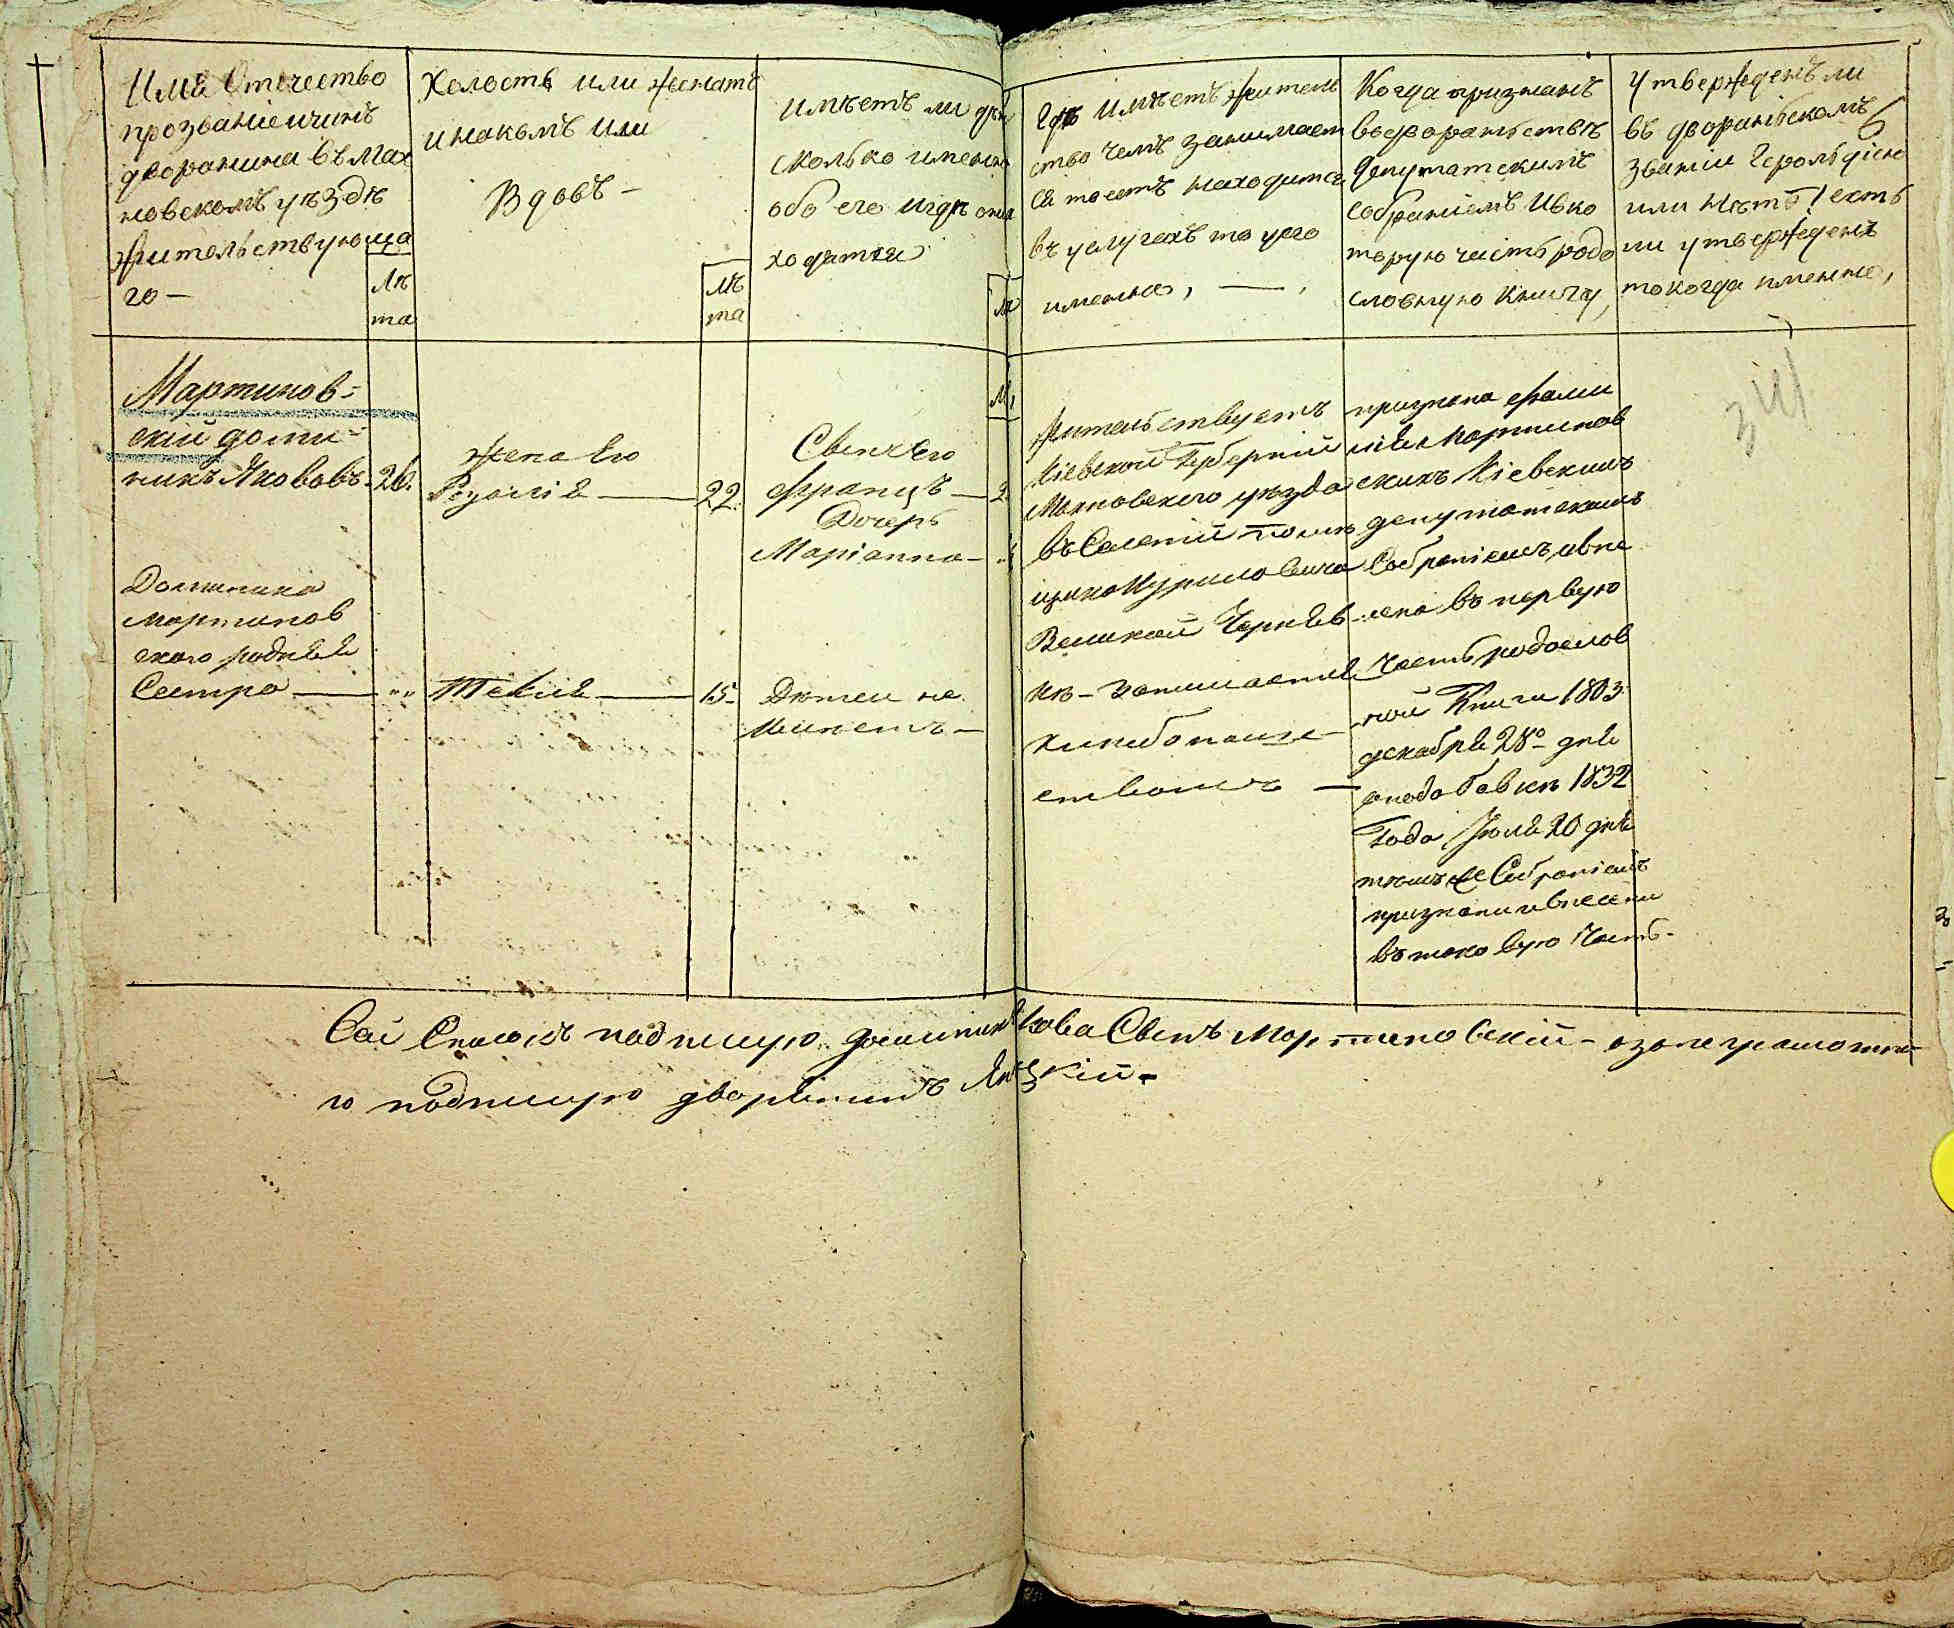 Имя Отечество
прозваніе и чинъ
дворянина въ Мах
новскомъ уѣздѣ
жительствующа
го —
Лѣ
та
Холостъ или женатъ
и накомъ или
Вдовъ —
Лѣ
та
имѣетъ ли
сколько именно
обоего и гдѣ они
ходятся
Лѣ
Гдѣ имѣетъ жителъ
ство чемъ занимает
ся
въ услугахъ то у кого
именно, —
Когда признанъ
въ дворанствѣ
Депутатскимъ
Собраніемъ и в ко
торую часть родо
словную книгу,
Утвержденъ ли
въ дворянскомъ
званіи Герольдіею
или нѣтъ / есть
ли утвержденъ
то когда именно,
6
341
Мартинов=
скій доми=
никъ Яковъ 26.
Жена Его
Розалія — 22.
Сынъ Его
Францъ — 2
Дочерь
Маріанна —
М.
Жительствуетъ
Кіевской Губерніи
Махновскаго уѣзда
въ Селеніи Помѣ
щика Куриловича
Великой Чернявѣ
кѣ — Занимается
хлебопаше
ствомъ —
признана фами
лія Мартинов
скихъ Кіевскимъ
депутатскимъ
Собраніемъ и вне
сена въ первую
Часть родослов
ной Книги 1803
декабря 28º дня
а подобавкѣ 1832
Года Іюля 20 дня
тѣмъ же Собраніемъ
признани и внесени
въ таковую Часть.
Доминика
Мартинов
скаго родная
Сестра — „„ Текля — 15. Дѣтей не
имѣетъ —
Сей Списокъ подпишую доминикъ Якова Сынъ Мартиновскій — а за неграмотна
го подпишую дворянинъ